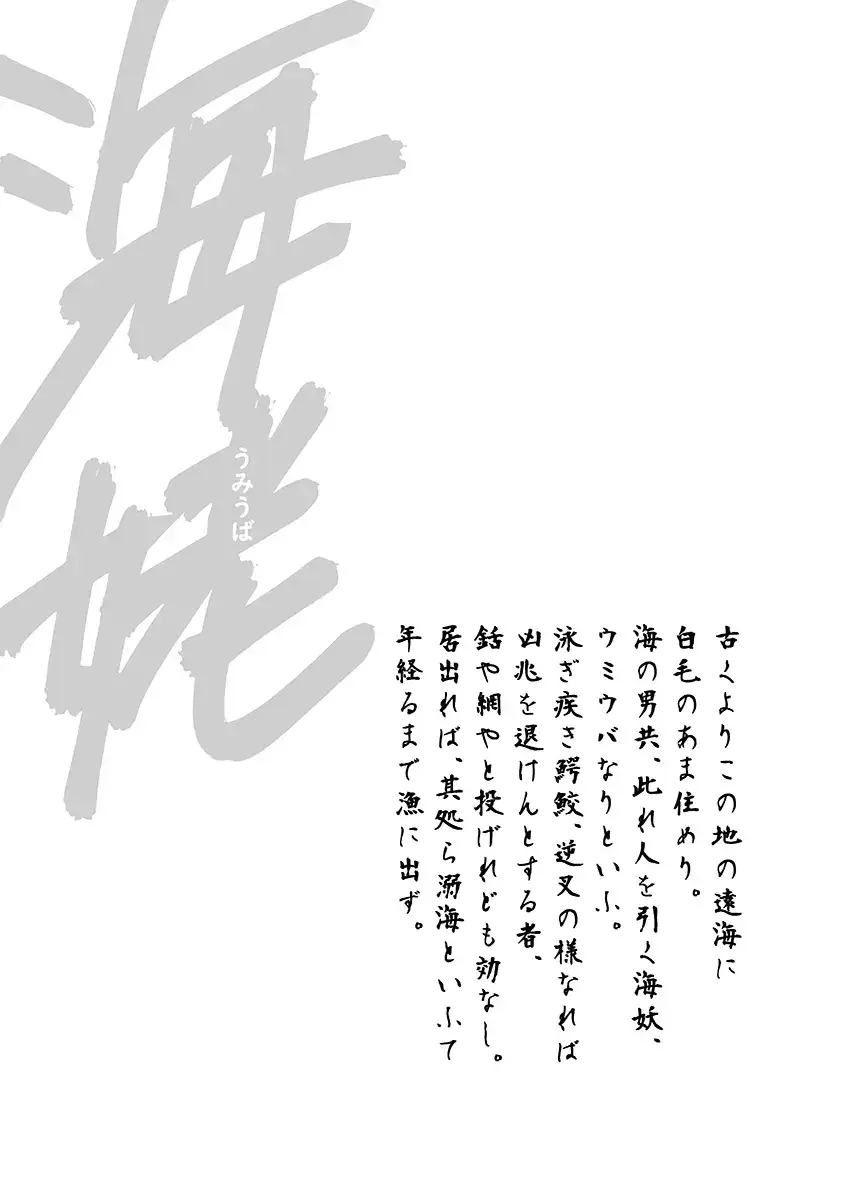 古くよりこの地の遠海に
白毛のあま住めり。
海の男共、此れ人を引く海妖、
ウミウバなりといふ。
泳ぎ疾き鰐鮫、逆叉の様なれば
凶兆を退けんとする者、
銛や網やと投げれども効なし。
居出れば、其処ら溺海といふて
年経るまで漁に出ず。
海姥
うみうば